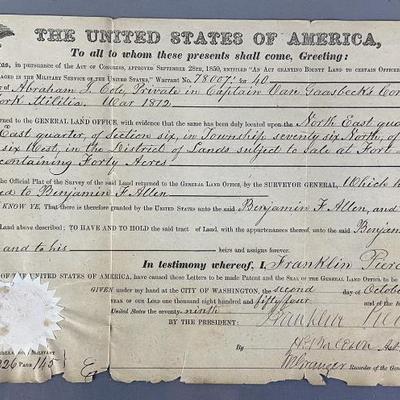 THE UNITED STATES OF AMERICA,
To all to whom these presents shall come, Greeting:
in pursuance of the Act of Congress, approved September 28th, 1850, entitled "An Act granting Bounty Land to certain Officer
aged in the Military Service of the United States," Warrant No. 78007, for 40
of Abraham J. Cole, Private in Captain Van Gaasbeck's Com
ork Militia, War 1812,
rned to the General Land Office, with evidence that the same has been duly located upon the North East qua
East quarter, of Section six, in Township seventy six North, of
six West, in the District of Lands subject to Sale at Fort
containing Forty Acres
the Official Plat of the Survey of the said Land returned to the General Land Office, by the SURVEYOR GENERAL, Which h
ed to Benjamin F. Allen
Know Ye, That there is therefore granted by the United States unto the said Benjamin F. Allen, and
Land above described; TO HAVE AND TO HOLD the said tract of Land, with the appurtenances thereof, unto the said Benja
and to his heirs and assigns forever.
In testimony whereof, I, Franklin Pierc
OF THE UNITED STATES OF AMERICA, have caused these Letters to be made Patent and the Seal of the General Land Office to be
GIVEN under my hand at the CITY OF WASHINGTON, the second day of October
year of our Lord one thousand eight hundred and fifty four and of the
United States the seventy-ninth
BY THE PRESIDENT: Franklin Pie
By
Granger Recorder of the Gene
Page 145